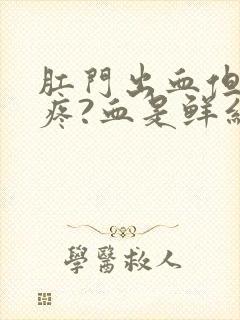 肛門出血但
疼?血是鮮
學醫救人